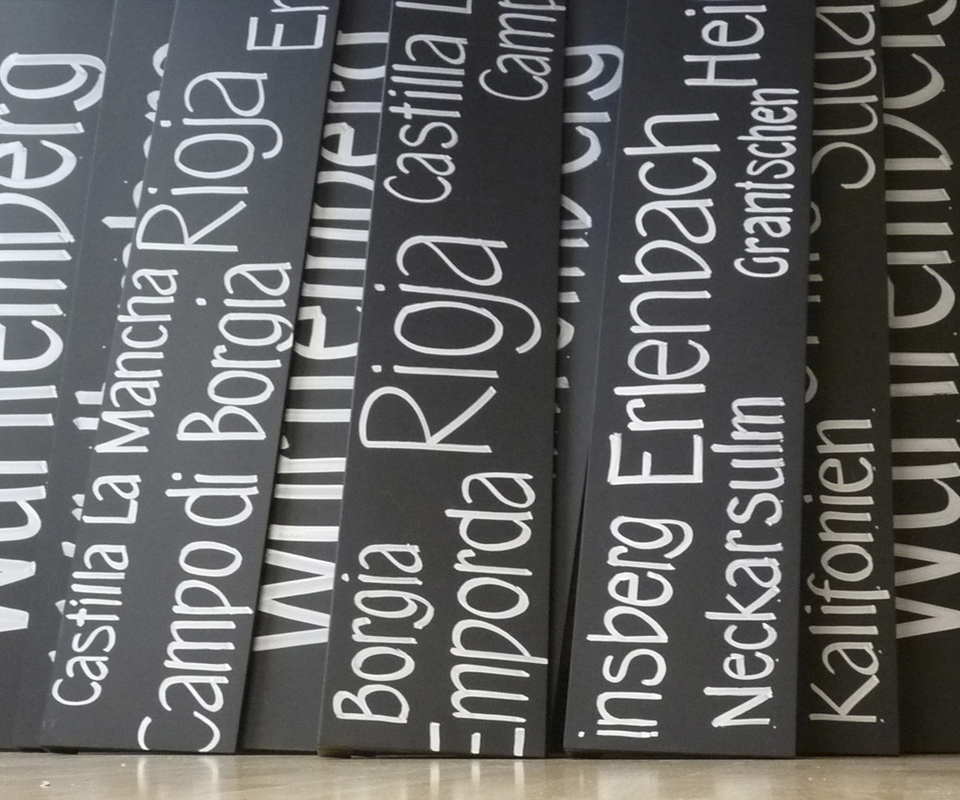 Württemberg
Castilla La Mancha Rioja Er
Campo di Borgia
Württemberg
Borgia Rioja Castilla L
Emporda Camp
insberg Erlenbach Hei
Neckarsulm Grantschen
Kalifonien
Württemberg